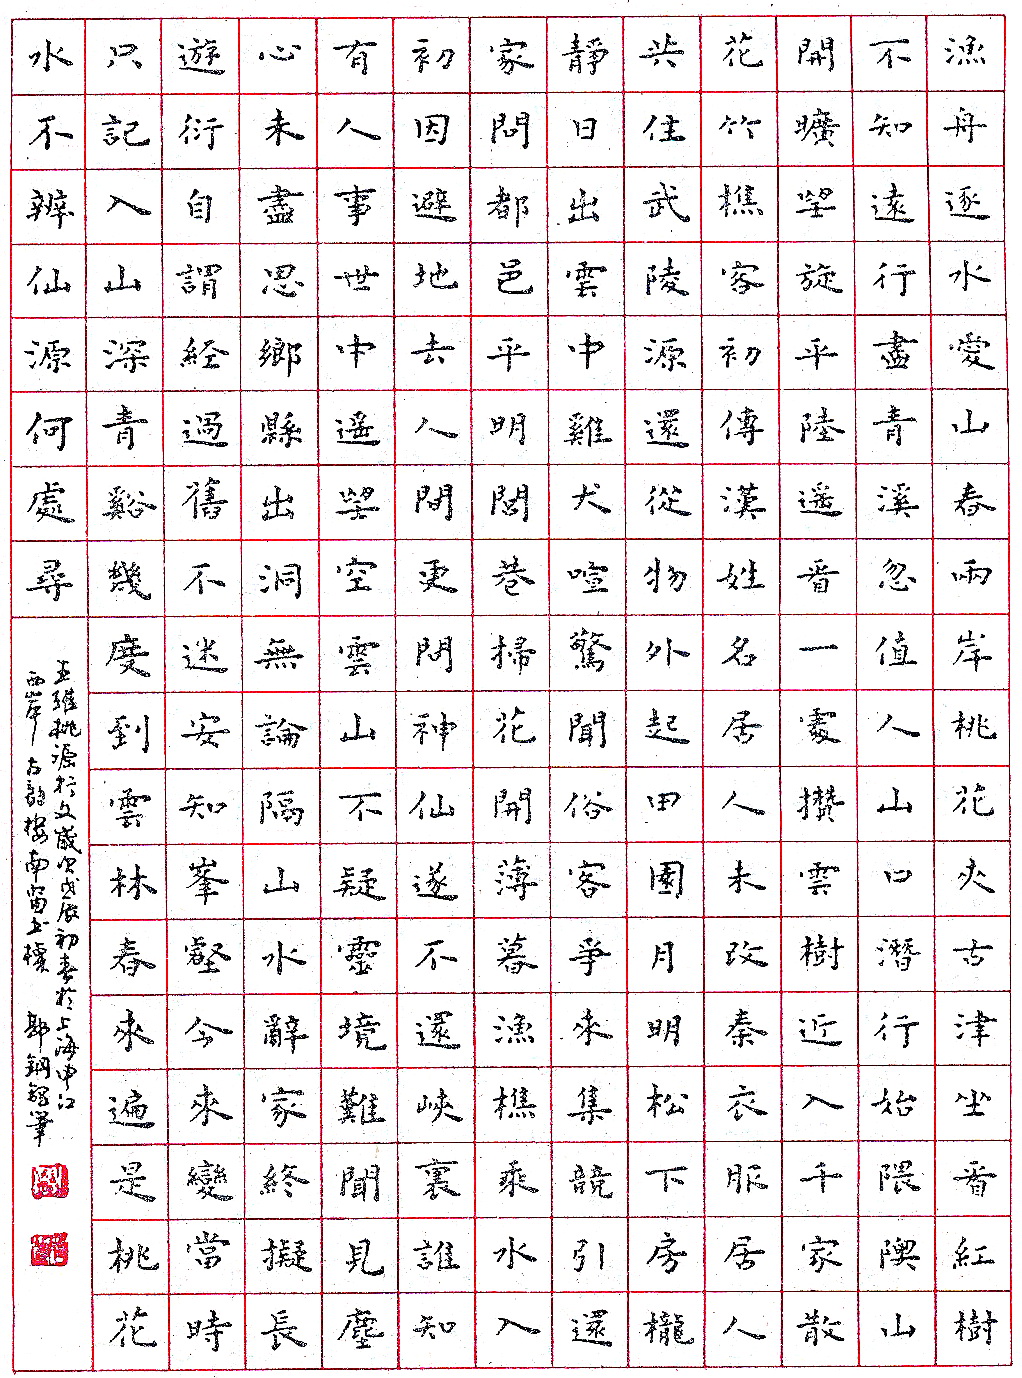 漁舟逐水愛山春兩岸桃花夾古津坐㸔紅樹
不知遠行盡青溪忽值人山口潛行始隈隩山
開曠朢旋平陸遥㸔一處攢雲樹近入千家散
花竹樵客初傳漢姓名居人未改秦衣服居人
共住武陵源還從物外起田園月明松下房櫳
靜日出雲中雞犬喧驚聞俗客爭來集競引還
家問都邑平明閭巷掃花開薄暮漁樵乘水入
初因避地去人間更問神仙遂不還峽裏誰知
有人事世中遥朢空雲山不疑靈境難聞見塵
心未盡思鄉縣出洞無論隔山水辭家終擬長
遊衍自謂經過舊不迷安知峯壑今來變當時
只記入山深青谿幾度到雲林春來遍是桃花
水不辨仙源何處尋
王維桃源行文歲次戊辰初春於上海申江
西岸古韻樓南窗